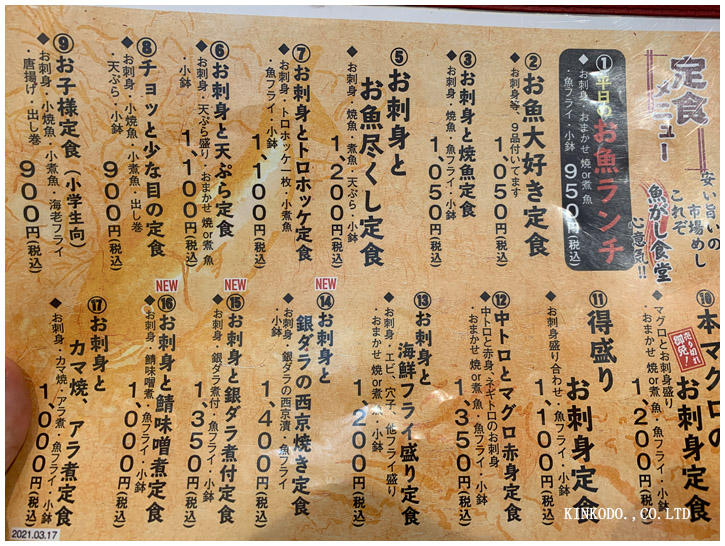 定食
メニュー
安い旨いの
市場めし
これぞ
魚がし食堂
心意気!!
①平日のお魚ランチ
◆お刺身・おまかせ 焼or煮 魚
・魚フライ・小鉢
950円(税込)
②お魚大好き定食
◆お刺身等、9品付いてます
1,050円(税込)
③お刺身と焼魚定食
◆お刺身・焼魚・魚フライ・小鉢
1,050円(税込)
⑤お刺身と
お魚尽くし定食
◆お刺身・焼魚・煮魚・天ぷら・小鉢
1,200円(税込)
⑦お刺身とトロホッケ定食
◆お刺身・トロホッケ一枚・小煮魚
・魚フライ・小鉢
1,100円(税込)
⑥お刺身と天ぷら定食
◆お刺身・天ぷら盛り・おまかせ 焼or煮 魚
・小鉢
1,100円(税込)
⑧チョッと少な目の定食
◆お刺身・小焼魚・小煮魚・出し巻
・天ぷら・小鉢
900円(税込)
⑨お子様定食(小学生向)
◆お刺身・小焼魚・小煮魚・海老フライ
・唐揚げ・出し巻
900円(税込)
⑩本マグロの
お刺身定食
売り切れ
御免!
◆マグロとお刺身盛り
・おまかせ 焼or煮 魚・魚フライ・小鉢
1,200円(税込)
⑪得盛り
お刺身定食
◆お刺身盛り合わせ・魚フライ・小鉢
1,100円(税込)
⑫中トロとマグロ赤身定食
◆中トロと赤身、ネギトロのお刺身
・おまかせ 焼or煮 魚・魚フライ・小鉢
1,350円(税込)
⑬お刺身と
海鮮フライ盛り定食
◆お刺身・エビ、穴子、他フライ盛り
・おまかせ 焼or煮 魚・小鉢
1,200円(税込)
NEW
⑭お刺身と
銀ダラの西京焼き定食
◆お刺身・銀ダラの西京漬・魚フライ
・小鉢
1,400円(税込)
NEW
⑮お刺身と銀ダラ煮付定食
◆お刺身・銀ダラ煮付・魚フライ・小鉢
1,350円(税込)
NEW
⑯お刺身と鯖味噌煮定食
◆お刺身・鯖味噌煮・魚フライ・小鉢
1,000円(税込)
⑰お刺身と
カマ焼、アラ煮定食
◆お刺身・カマ焼・アラ煮・魚フライ・小鉢
1,000円(税込)
2021.03.17
KINKODO.,CO.LTD